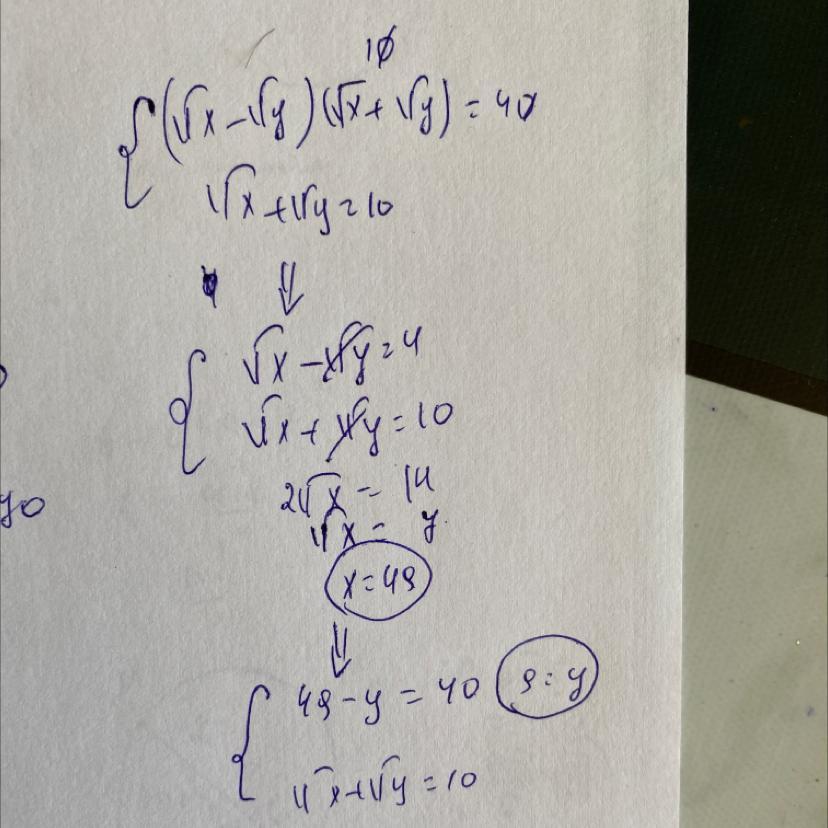 10
(√x-√y)(√x+√y)=40
√x+√y=10
⇓
√x-√y=4
√x+√y=10
2√x=14
√x=7
x=49
⇓
49-y=40 9=y
√x+√y=10